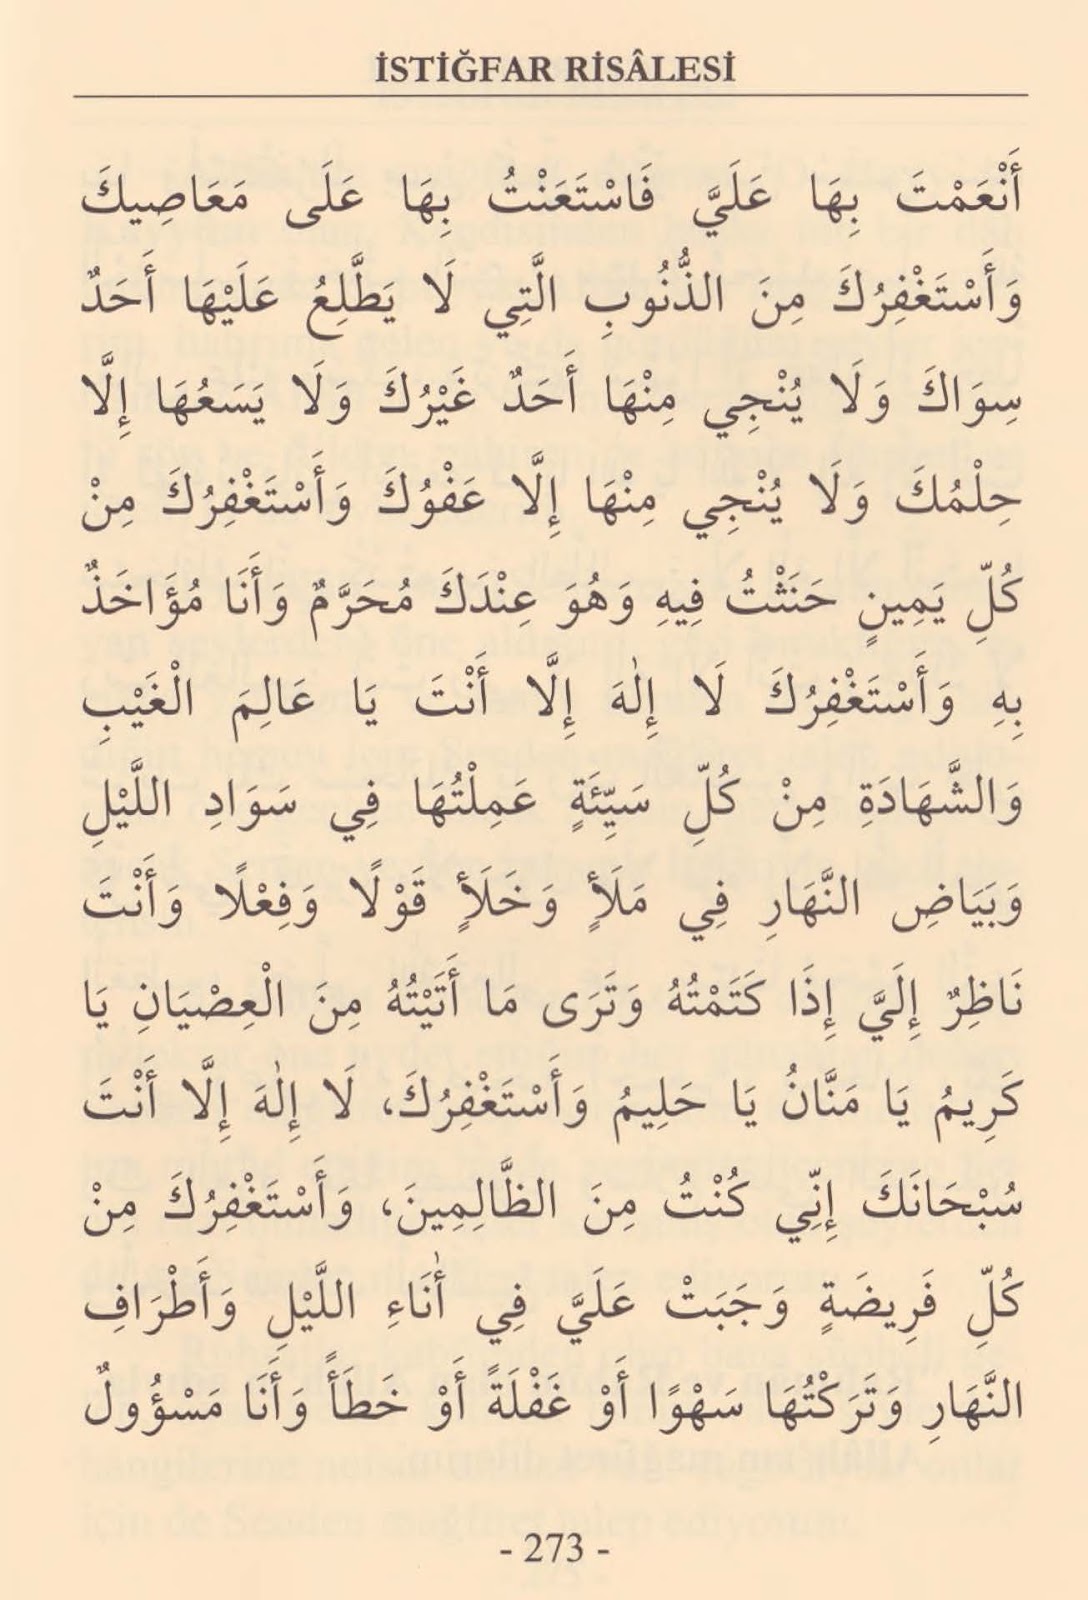 İSTİĞFAR RİSÂLESİ
أَنْعَمْتَ بِهَا عَلَيَّ فَاسْتَعَنْتُ بِهَا عَلَى مَعَاصِيكَ
وَأَسْتَغْفِرُكَ مِنَ الذُّنُوبِ الَّتِي لَا يَطَّلِعُ عَلَيْهَا أَحَدٌ
سِوَاكَ وَلَا يُنْجِي مِنْهَا أَحَدٌ غَيْرُكَ وَلَا يَسَعُهَا إِلَّا
حِلْمُكَ وَلَا يُنْجِي مِنْهَا إِلَّا عَفْوُكَ وَأَسْتَغْفِرُكَ مِنْ
كُلِّ يَمِينٍ حَنَثْتُ فِيهِ وَهُوَ عِنْدَكَ مُحَرَّمٌ وَأَنَا مُؤَاخَذٌ
بِهِ وَأَسْتَغْفِرُكَ لَا إِلٰهَ إِلَّا أَنْتَ يَا عَالِمَ الْغَيْبِ
وَالشَّهَادَةِ مِنْ كُلِّ سَيِّئَةٍ عَمِلْتُهَا فِي سَوَادِ اللَّيْلِ
وَبَيَاضِ النَّهَارِ فِي مَلَأٍ وَخَلَأٍ قَوْلًا وَفِعْلًا وَأَنْتَ
نَاظِرٌ إِلَيَّ إِذَا كَتَمْتُهُ وَتَرَى مَا أَتَيْتُهُ مِنَ الْعِصْيَانِ يَا
كَرِيمُ يَا مَنَّانُ يَا حَلِيمُ وَأَسْتَغْفِرُكَ، لَا إِلٰهَ إِلَّا أَنْتَ
سُبْحَانَكَ إِنِّي كُنْتُ مِنَ الظَّالِمِينَ، وَأَسْتَغْفِرُكَ مِنْ
كُلِّ فَرِيضَةٍ وَجَبَتْ عَلَيَّ فِي أٰنَاءِ اللَّيْلِ وَأَطْرَافِ
النَّهَارِ وَتَرَكْتُهَا سَهْوًا أَوْ غَفْلَةً أَوْ خَطَأً وَأَنَا مَسْؤُولٌ
- 273 -